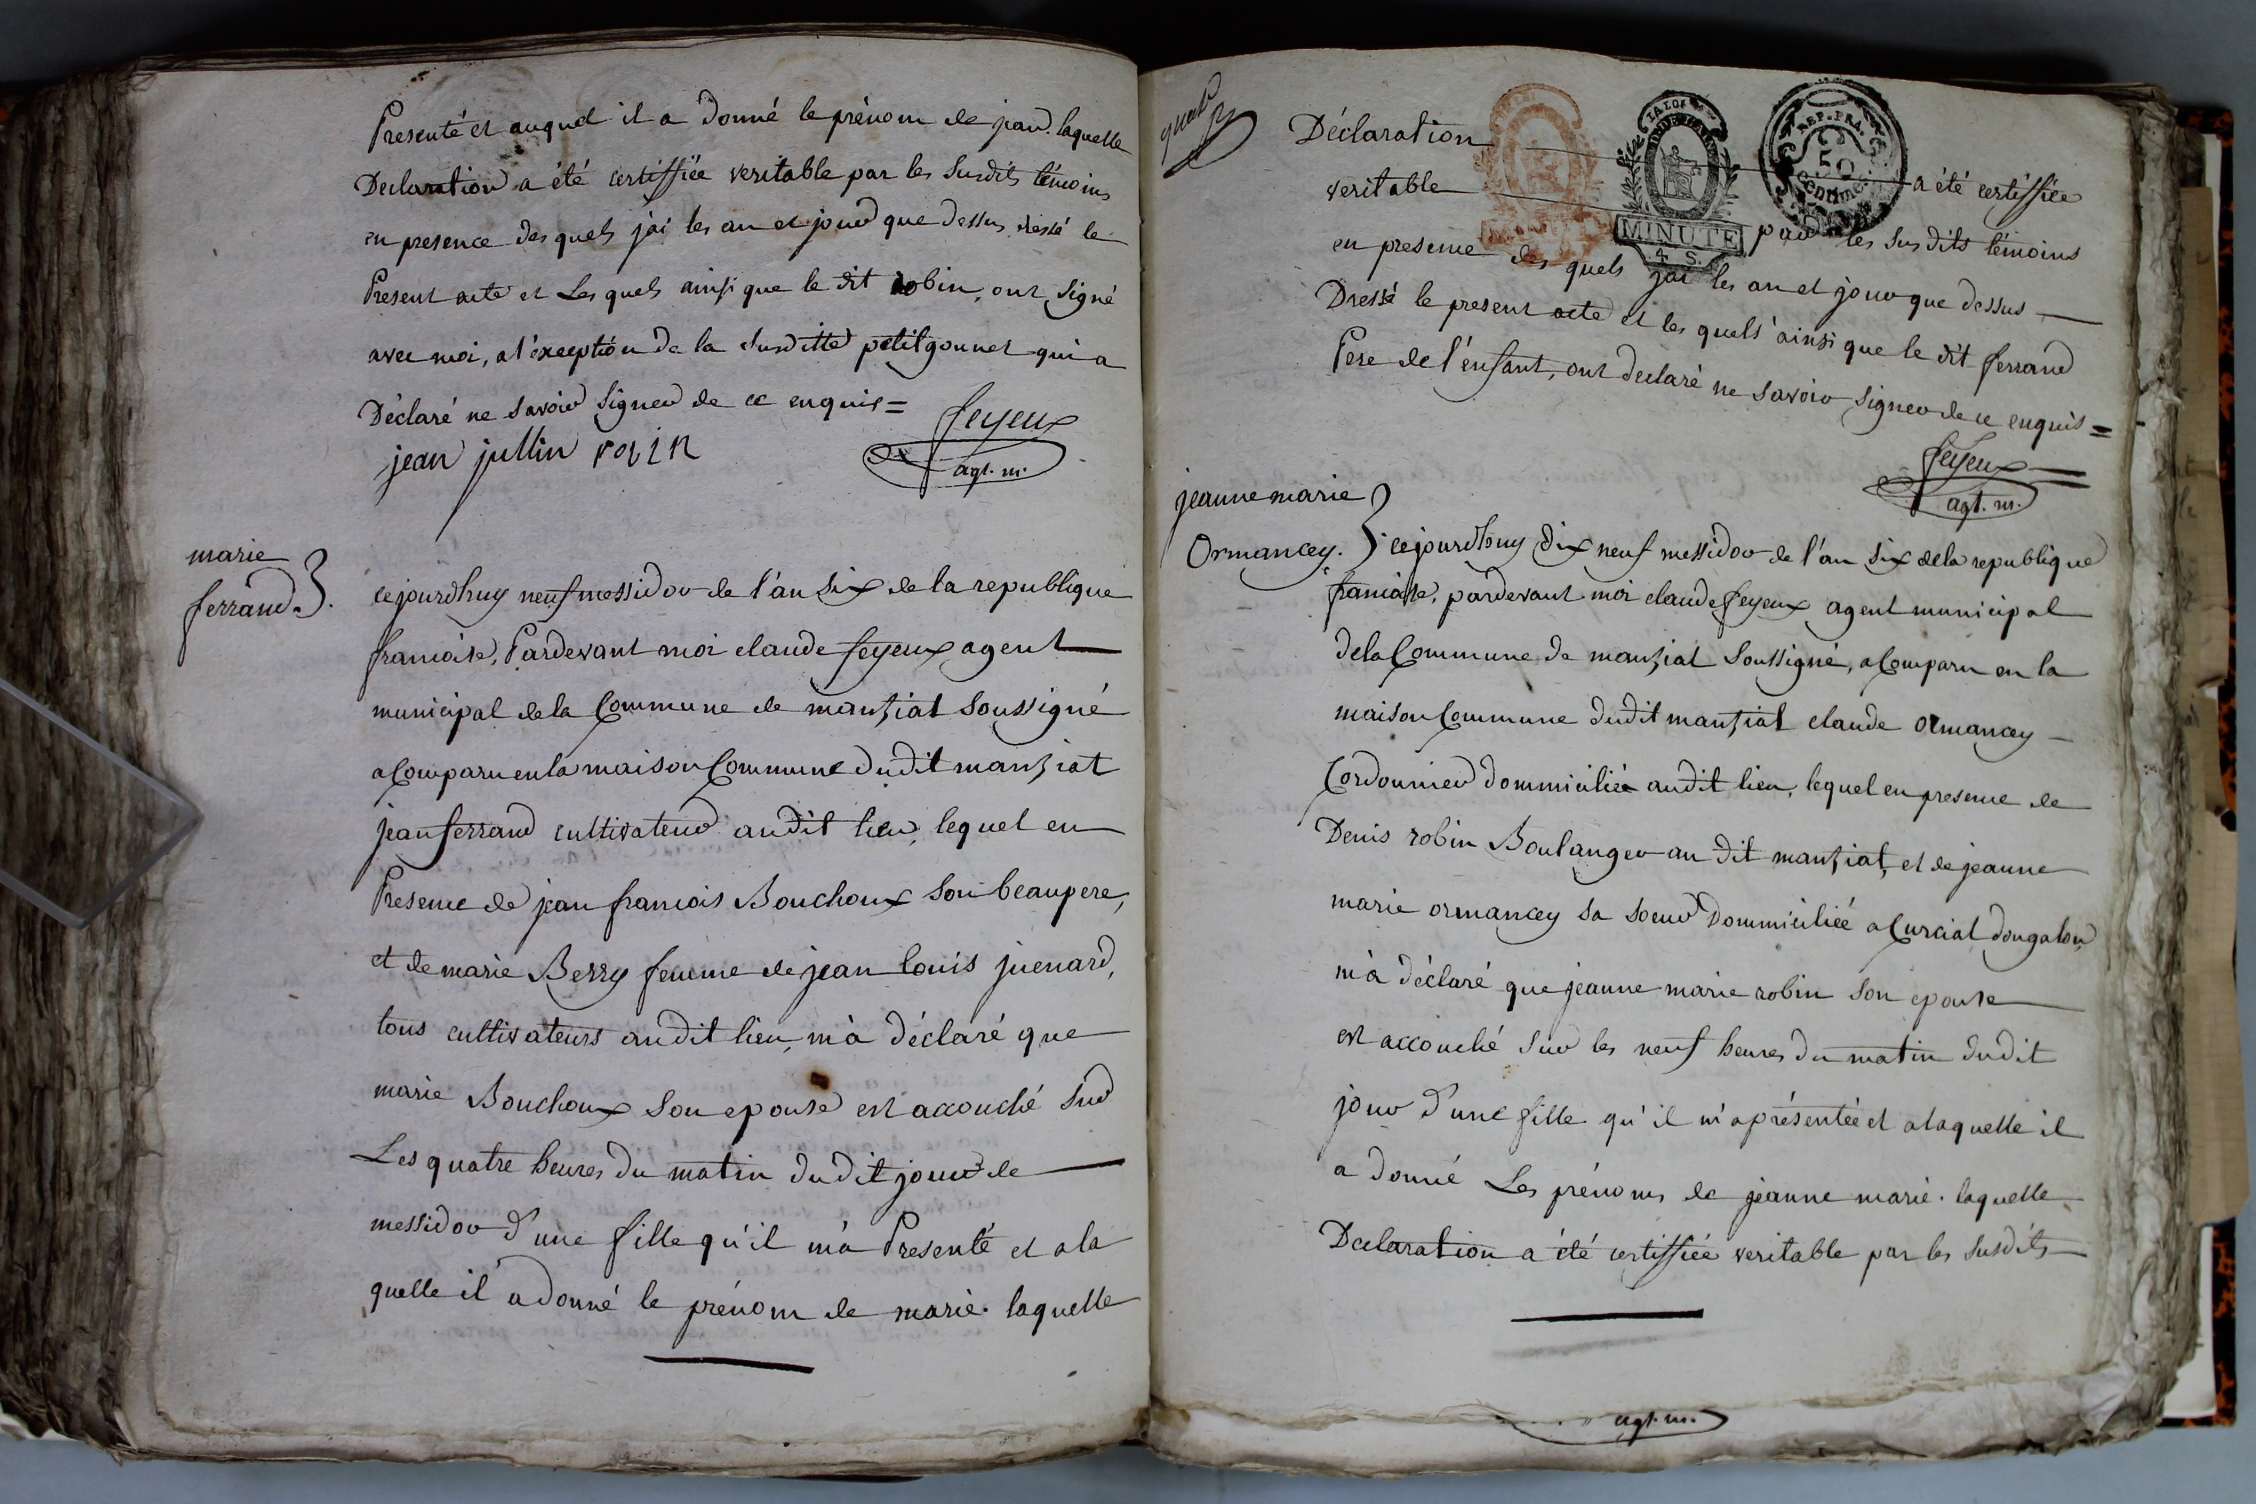 Presenté et auquel il a Donné le prénom de jean. laquelle
Declaration a été certiffiée veritable par les susdits témoins
en presence des quels j'ai les an et jour que dessus dressé le
Present acte et Les quels ainsi que le dit robin, ont signé
avec moi, a l'exception de la susditte petitjonnet qui a
Déclaré ne savoir signer de ce enquis =
feyeux
jean jullin robin
agt. m.
marie
ferrand
cejourdhuy neuf messidor de l'an six de la republique
francoise, Pardevant moi claude feyeux agent
municipal de la Commune de manziat soussigné
a Comparu en la maison Commune dudit manziat
jean ferrand cultivateur audit lieu, lequel en
Presence de jean francois Bouchoux son beaupere,
et de marie Berry femme de jean louis juenard,
tous cultivateurs audit lieu, m'a déclaré que
marie Bouchoux son epouse est accouché sur
Les quatre heures du matin dudit jour de
messidor d'une fille qu'il m'a Presenté et a la
quelle il a donné le prénom de marie. laquelle
Déclaration
LA LOI
REP. FRA.
50
centime
a été certiffiée
veritable
MINUTE
4 S.
par les susdits témoins
en presence des quels j'ai les an et jour que dessus
Dressé le present acte et les quels ainsi que le dit ferrand
Pere de l'enfant, ont declaré ne savoir signer de ce enquis =
feyeux
agt. m.
jeanne marie
Ormancey.
cejourdhuy dix neuf messidor de l'an six de la republique
francoise, pardevant moi claude feyeux agent municipal
de la Commune de manziat soussigné, a Comparu en la
maison Commune dudit manziat claude ormancey
Cordonnier dommicilié audit lieu, lequel en presence de
Denis robin Boulanger au dit manziat, et de jeanne
marie ormancey sa soeur Dommiciliée a Curciat dongalon,
m'a déclaré que jeanne marie robin son epouse
est accouché sur les neuf heures du matin dudit
jour d'une fille qu'il m'a présentée et a laquelle il
a donné Les prénoms de jeanne marie. laquelle
Declaration a été certiffiée veritable par les susdits
agt. m.